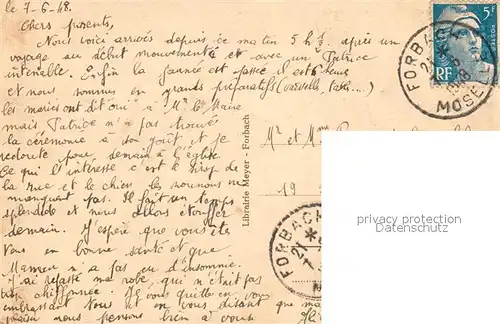 le 7-6-48.
Chers parents,
Nous voici arrivés depuis ce matin 5 h ½. après un
voyage au début mouvementé et avec un Patrice
intenable. Enfin la journée est passée il est 6 heures
et nous sommes en grands préparatifs (vaisselle, ...)
les maries ont dit "oui" à Mr le Maire
mais Patrice n'a pas trouvé
la cérémonie à son goût et je
redoute pour demain à l'église
Ce qui l'intéresse c'est le sirop de
la rue et le chien les nounous ne
manquent pas. Il fait un temps
splendide et nous allons étouffer
demain. J'espère que vous êtes
tous en bonne santé et que
Maman n'a pas eu d'insomnie.
J'ai repassé ma robe, qui n'était pas
chiffonnée. Je vous quitte en vous
embrassant tous et en vous disant que
nous pensons bien à vous.
Mr et Mme
19
Librairie Meyer - Forbach
5F
POSTES
RF
FORBACH
21
1948
MOSELLE
FORBACH
21 *
7
M
privacy protection
watermark